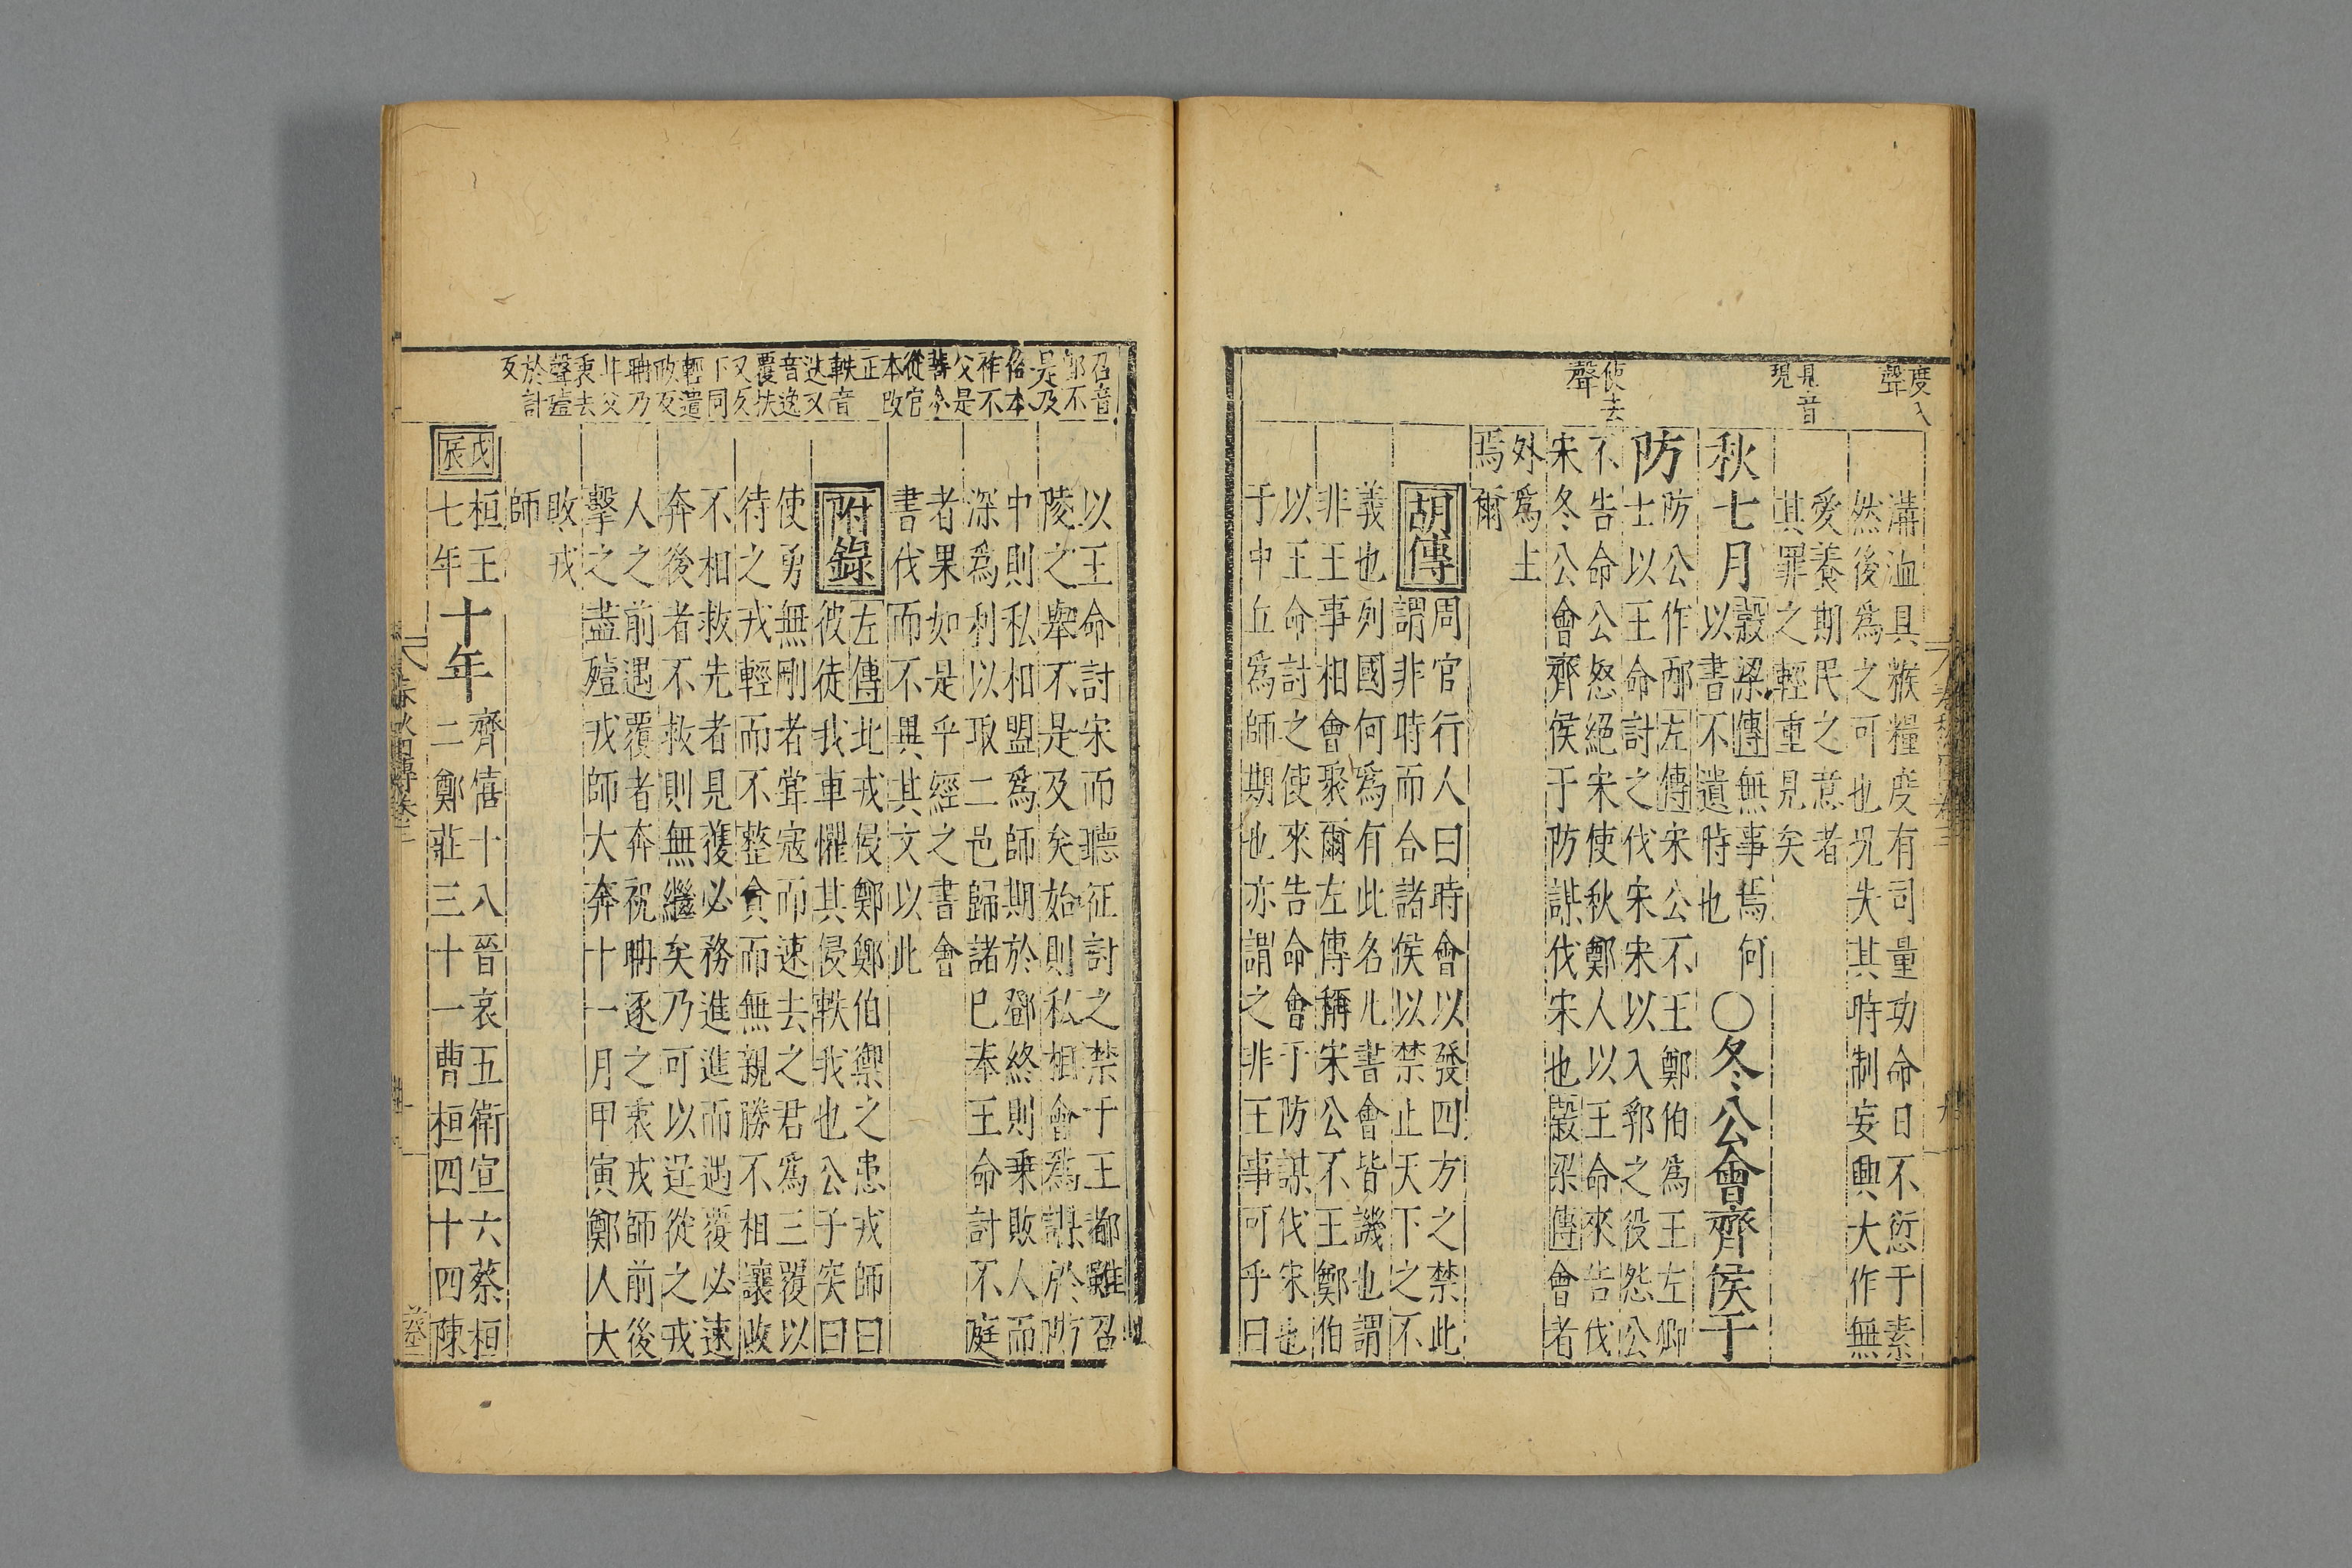 度入
聲
見音
現
使去
聲
溝洫具糇糧度有司量功命日不愆于素
然後爲之可也况失其時制妄興大作無
愛養期民之意者
其罪之輕重見矣
秋七月穀梁傳無事焉何
以書不遺時也〇冬公會齊侯于
防防公作邴左傳宋公不王鄭伯爲王左卿
士以王命討之伐宋宋以入郛之役怨公
不告命公怒絕宋使秋鄭人以王命來告伐
宋冬公會齊侯于防謀伐宋也穀梁傳會者
外爲上
焉爾
胡傳周官行人曰時會以發四方之禁此
謂非時而合諸侯以禁止天下之不
義也列國何爲有此名凡書會皆譏也謂
非王事相會聚爾左傳稱宋公不王鄭伯
以王命討之使來告命會于防謀伐宋也
于中丘爲師期也亦謂之非王事可乎曰
召音
郛不
是及
俗本
作不
父是
舊今
從官
本改
正
軼音
迭又
音逸
覆扶
又久
下同
輕遣
政反
聃乃
甘父
衷去
聲殪
於計
反
以王命討宋而聽征討之禁于王都雖召
陵之舉不是及矣始則私相會爲謀於防
中則私相盟爲師期於鄧終則乗敗人而
深爲利以取二邑歸諸已奉王命討不庭
者果如是乎經之書會
書伐而不異其文以此
附錄左傳北戎侵鄭鄭伯禦之患戎師曰
彼徒我車懼其侵軼我也公子突曰
使勇無剛者嘗寇而速去之君爲三覆以
待之戎輕而不整貪而無親勝不相讓敗
不相救先者見獲必務進進而遇覆必速
奔後者不救則無繼矣乃可以逞從之戎
人之前遇覆者奔祝聃逐之衷戎師前後
擊之盡殪戎師大奔十一月甲寅鄭人大
敗戎
師
戊
辰
桓王
七年
十年
齊僖十八晉哀五衛宣六蔡桓
二鄭莊三十一曹桓四十四陳
春秋四傳卷三